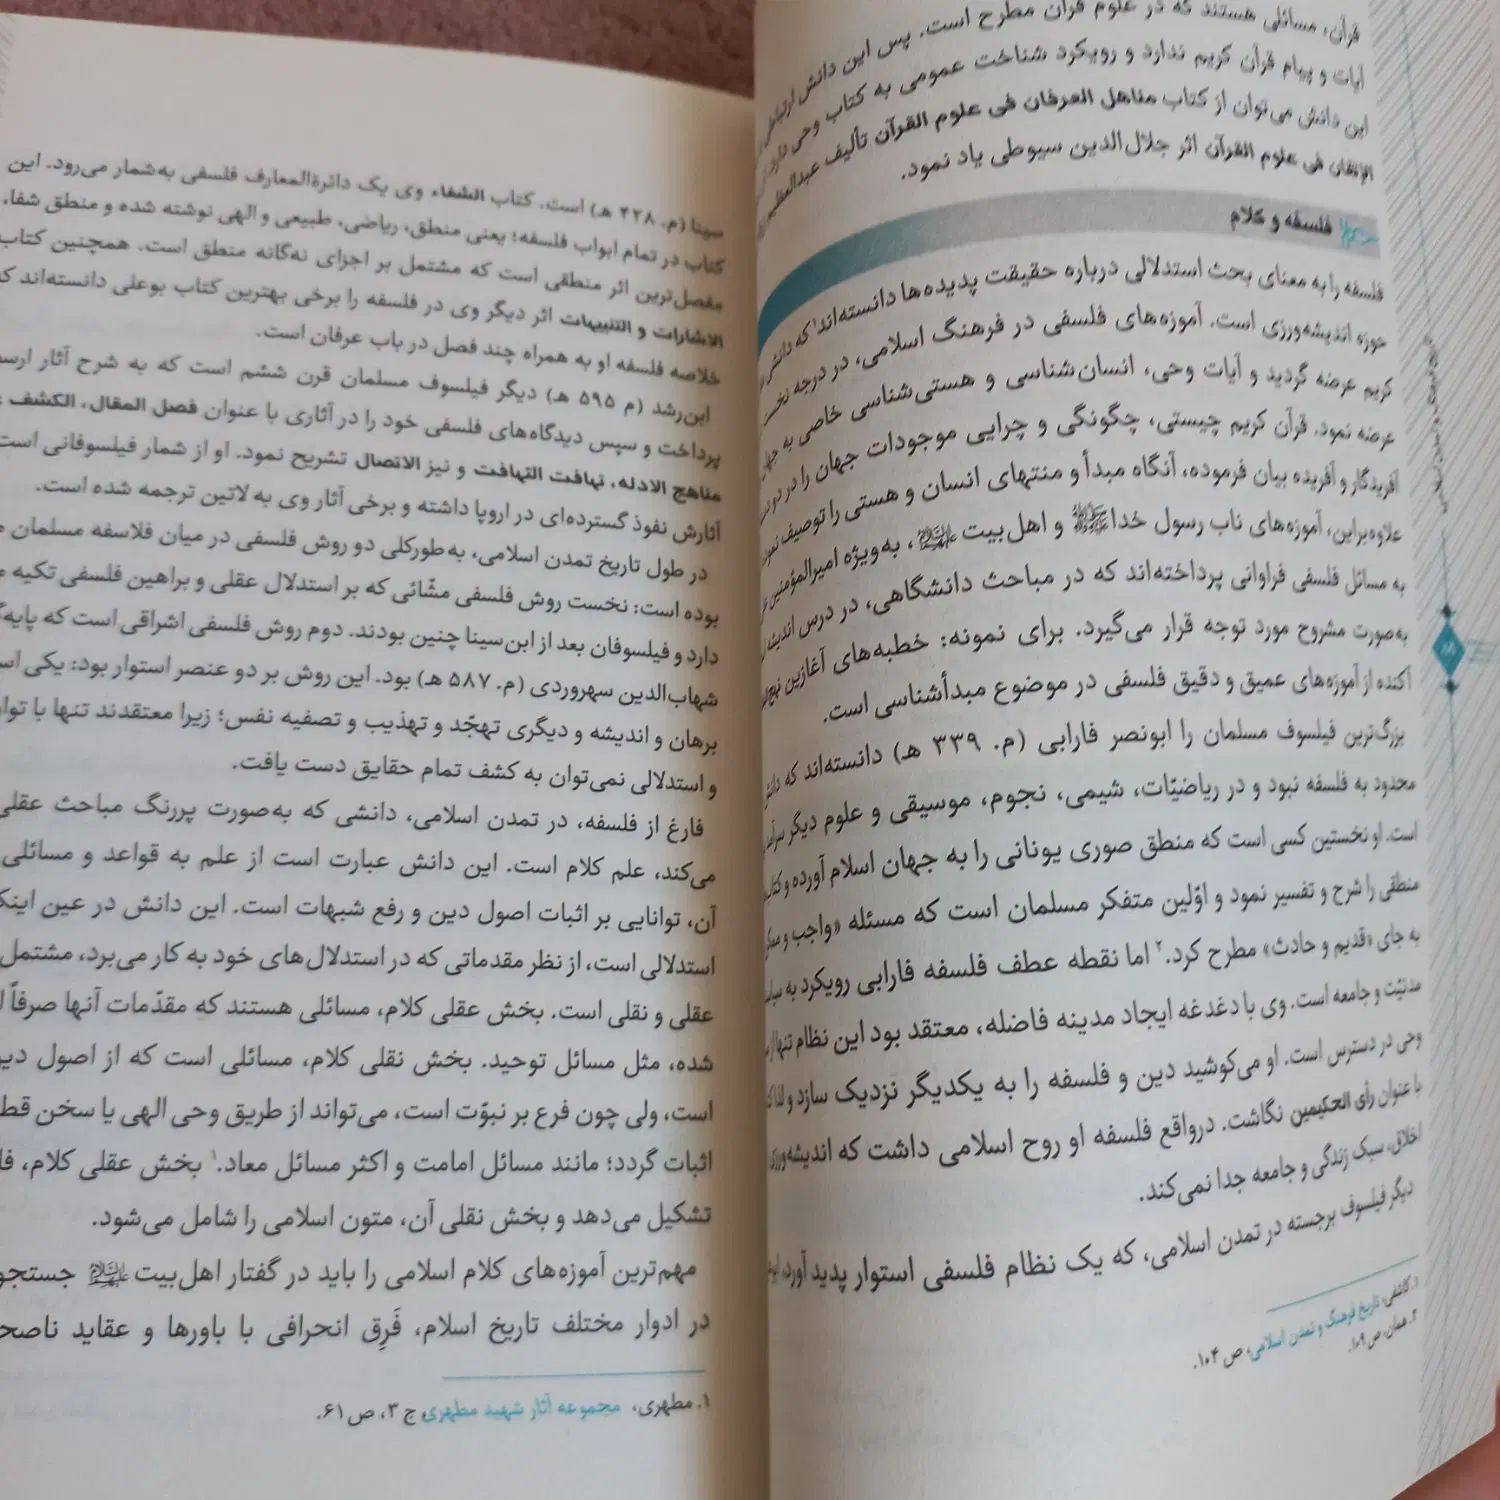 قرآن، مسائلی هستند که در علوم قرآن مطرح است. پس این دانش ارتباطی
آیات و پیام قرآن کریم ندارد و رویکرد شناخت عمومی به کتاب وحی دارد.
این دانش می‌توان از کتاب مناهل العرفان فی علوم القرآن تألیف عبدالعظیم
الإتقان فی علوم القرآن اثر جلال‌الدین سیوطی یاد نمود.
فلسفه و کلام
فلسفه را به معنای بحث استدلالی درباره حقیقت پدیده‌ها دانسته‌اند۱ که دانش
حوزه اندیشه‌ورزی است. آموزه‌های فلسفی در فرهنگ اسلامی، در درجه نخست
کریم عرضه گردید و آیات وحی، انسان‌شناسی و هستی‌شناسی خاصی به
عرضه نمود. قرآن کریم چیستی، چگونگی و چرایی موجودات جهان را در دو
آفریدگار و آفریده بیان فرموده، آنگاه مبدأ و منتهای انسان و هستی را توصیف
علاوه‌براین، آموزه‌های ناب رسول خداﷺ و اهل‌بیت، به‌ویژه امیرالمؤمنین
به مسائل فلسفی فراوانی پرداخته‌اند که در مباحث دانشگاهی، در درس اندیشه
به‌صورت مشروح مورد توجه قرار می‌گیرد. برای نمونه: خطبه‌های آغازین
آکنده از آموزه‌های عمیق و دقیق فلسفی در موضوع مبدأشناسی است.
بزرگ‌ترین فیلسوف مسلمان را ابونصر فارابی (م. ۳۳۹ هـ) دانسته‌اند که
محدود به فلسفه نبود و در ریاضیّات، شیمی، نجوم، موسیقی و علوم دیگر
است. او نخستین کسی است که منطق صوری یونانی را به جهان اسلام آورده و
منطقی را شرح و تفسیر نمود و اوّلین متفکر مسلمان است که مسئله «واجب و
به جای «قدیم و حادث» مطرح کرد.۲ اما نقطه عطف فلسفه فارابی رویکرد به
مدنیّت و جامعه است. وی با دغدغه ایجاد مدینه فاضله، معتقد بود این نظام تنها
وحی در دسترس است. او می‌کوشید دین و فلسفه را به یکدیگر نزدیک سازد و لذا
با عنوان رأی الحکیمین نگاشت. درواقع فلسفه او روح اسلامی داشت که اندیشه‌ورزی
اخلاق، سبک زندگی و جامعه جدا نمی‌کند.
دیگر فیلسوف برجسته در تمدن اسلامی، که یک نظام فلسفی استوار پدید آورد،
۱. کاشفی، تاریخ فرهنگ و تمدن اسلامی، ص ۱۰۴.
۲. همان، ص ۱۰۹.
سینا (م. ۴۲۸ هـ) است. کتاب الشفاء وی یک دائرةالمعارف فلسفی به‌شمار می‌رود. این
کتاب در تمام ابواب فلسفه؛ یعنی منطق، ریاضی، طبیعی و الهی نوشته شده و منطق شفاء،
مفصل‌ترین اثر منطقی است که مشتمل بر اجزای نه‌گانه منطق است. همچنین کتاب
الاشارات و التنبیهات اثر دیگر وی در فلسفه را برخی بهترین کتاب بوعلی دانسته‌اند
خلاصه فلسفه او به همراه چند فصل در باب عرفان است.
ابن‌رشد (م ۵۹۵ هـ) دیگر فیلسوف مسلمان قرن ششم است که به شرح آثار
پرداخت و سپس دیدگاه‌های فلسفی خود را در آثاری با عنوان فصل المقال، الکشف
مناهج الادله، تهافت التهافت و نیز الاتصال تشریح نمود. او از شمار فیلسوفانی است
آثارش نفوذ گسترده‌ای در اروپا داشته و برخی آثار وی به لاتین ترجمه شده است.
در طول تاریخ تمدن اسلامی، به‌طورکلی دو روش فلسفی در میان فلاسفه مسلمان
بوده است: نخست روش فلسفی مشّائی که بر استدلال عقلی و براهین فلسفی تکیه
دارد و فیلسوفان بعد از ابن‌سینا چنین بودند. دوم روش فلسفی اشراقی است که
شهاب‌الدین سهروردی (م. ۵۸۷ هـ) بود. این روش بر دو عنصر استوار بود: یکی
برهان و اندیشه و دیگری تهجّد و تهذیب و تصفیه نفس؛ زیرا معتقدند تنها با
و استدلالی نمی‌توان به کشف تمام حقایق دست یافت.
فارغ از فلسفه، در تمدن اسلامی، دانشی که به‌صورت پررنگ مباحث عقلی
می‌کند، علم کلام است. این دانش عبارت است از علم به قواعد و مسائلی
آن، توانایی بر اثبات اصول دین و رفع شبهات است. این دانش در عین
استدلالی است، از نظر مقدماتی که در استدلال‌های خود به کار می‌برد، مشتمل
عقلی و نقلی است. بخش عقلی کلام، مسائلی هستند که مقدّمات آنها صرفاً
شده، مثل مسائل توحید. بخش نقلی کلام، مسائلی است که از اصول
است، ولی چون فرع بر نبوّت است، می‌تواند از طریق وحی الهی یا سخن
اثبات گردد؛ مانند مسائل امامت و اکثر مسائل معاد.۱ بخش عقلی کلام،
تشکیل می‌دهد و بخش نقلی آن، متون اسلامی را شامل می‌شود.
مهم‌ترین آموزه‌های کلام اسلامی را باید در گفتار اهل‌بیت جستجو
در ادوار مختلف تاریخ اسلام، فَرِق انحرافی با باورها و عقاید
۱. مطهری، مجموعه آثار شهید مطهری، ج ۳، ص ۶۱.